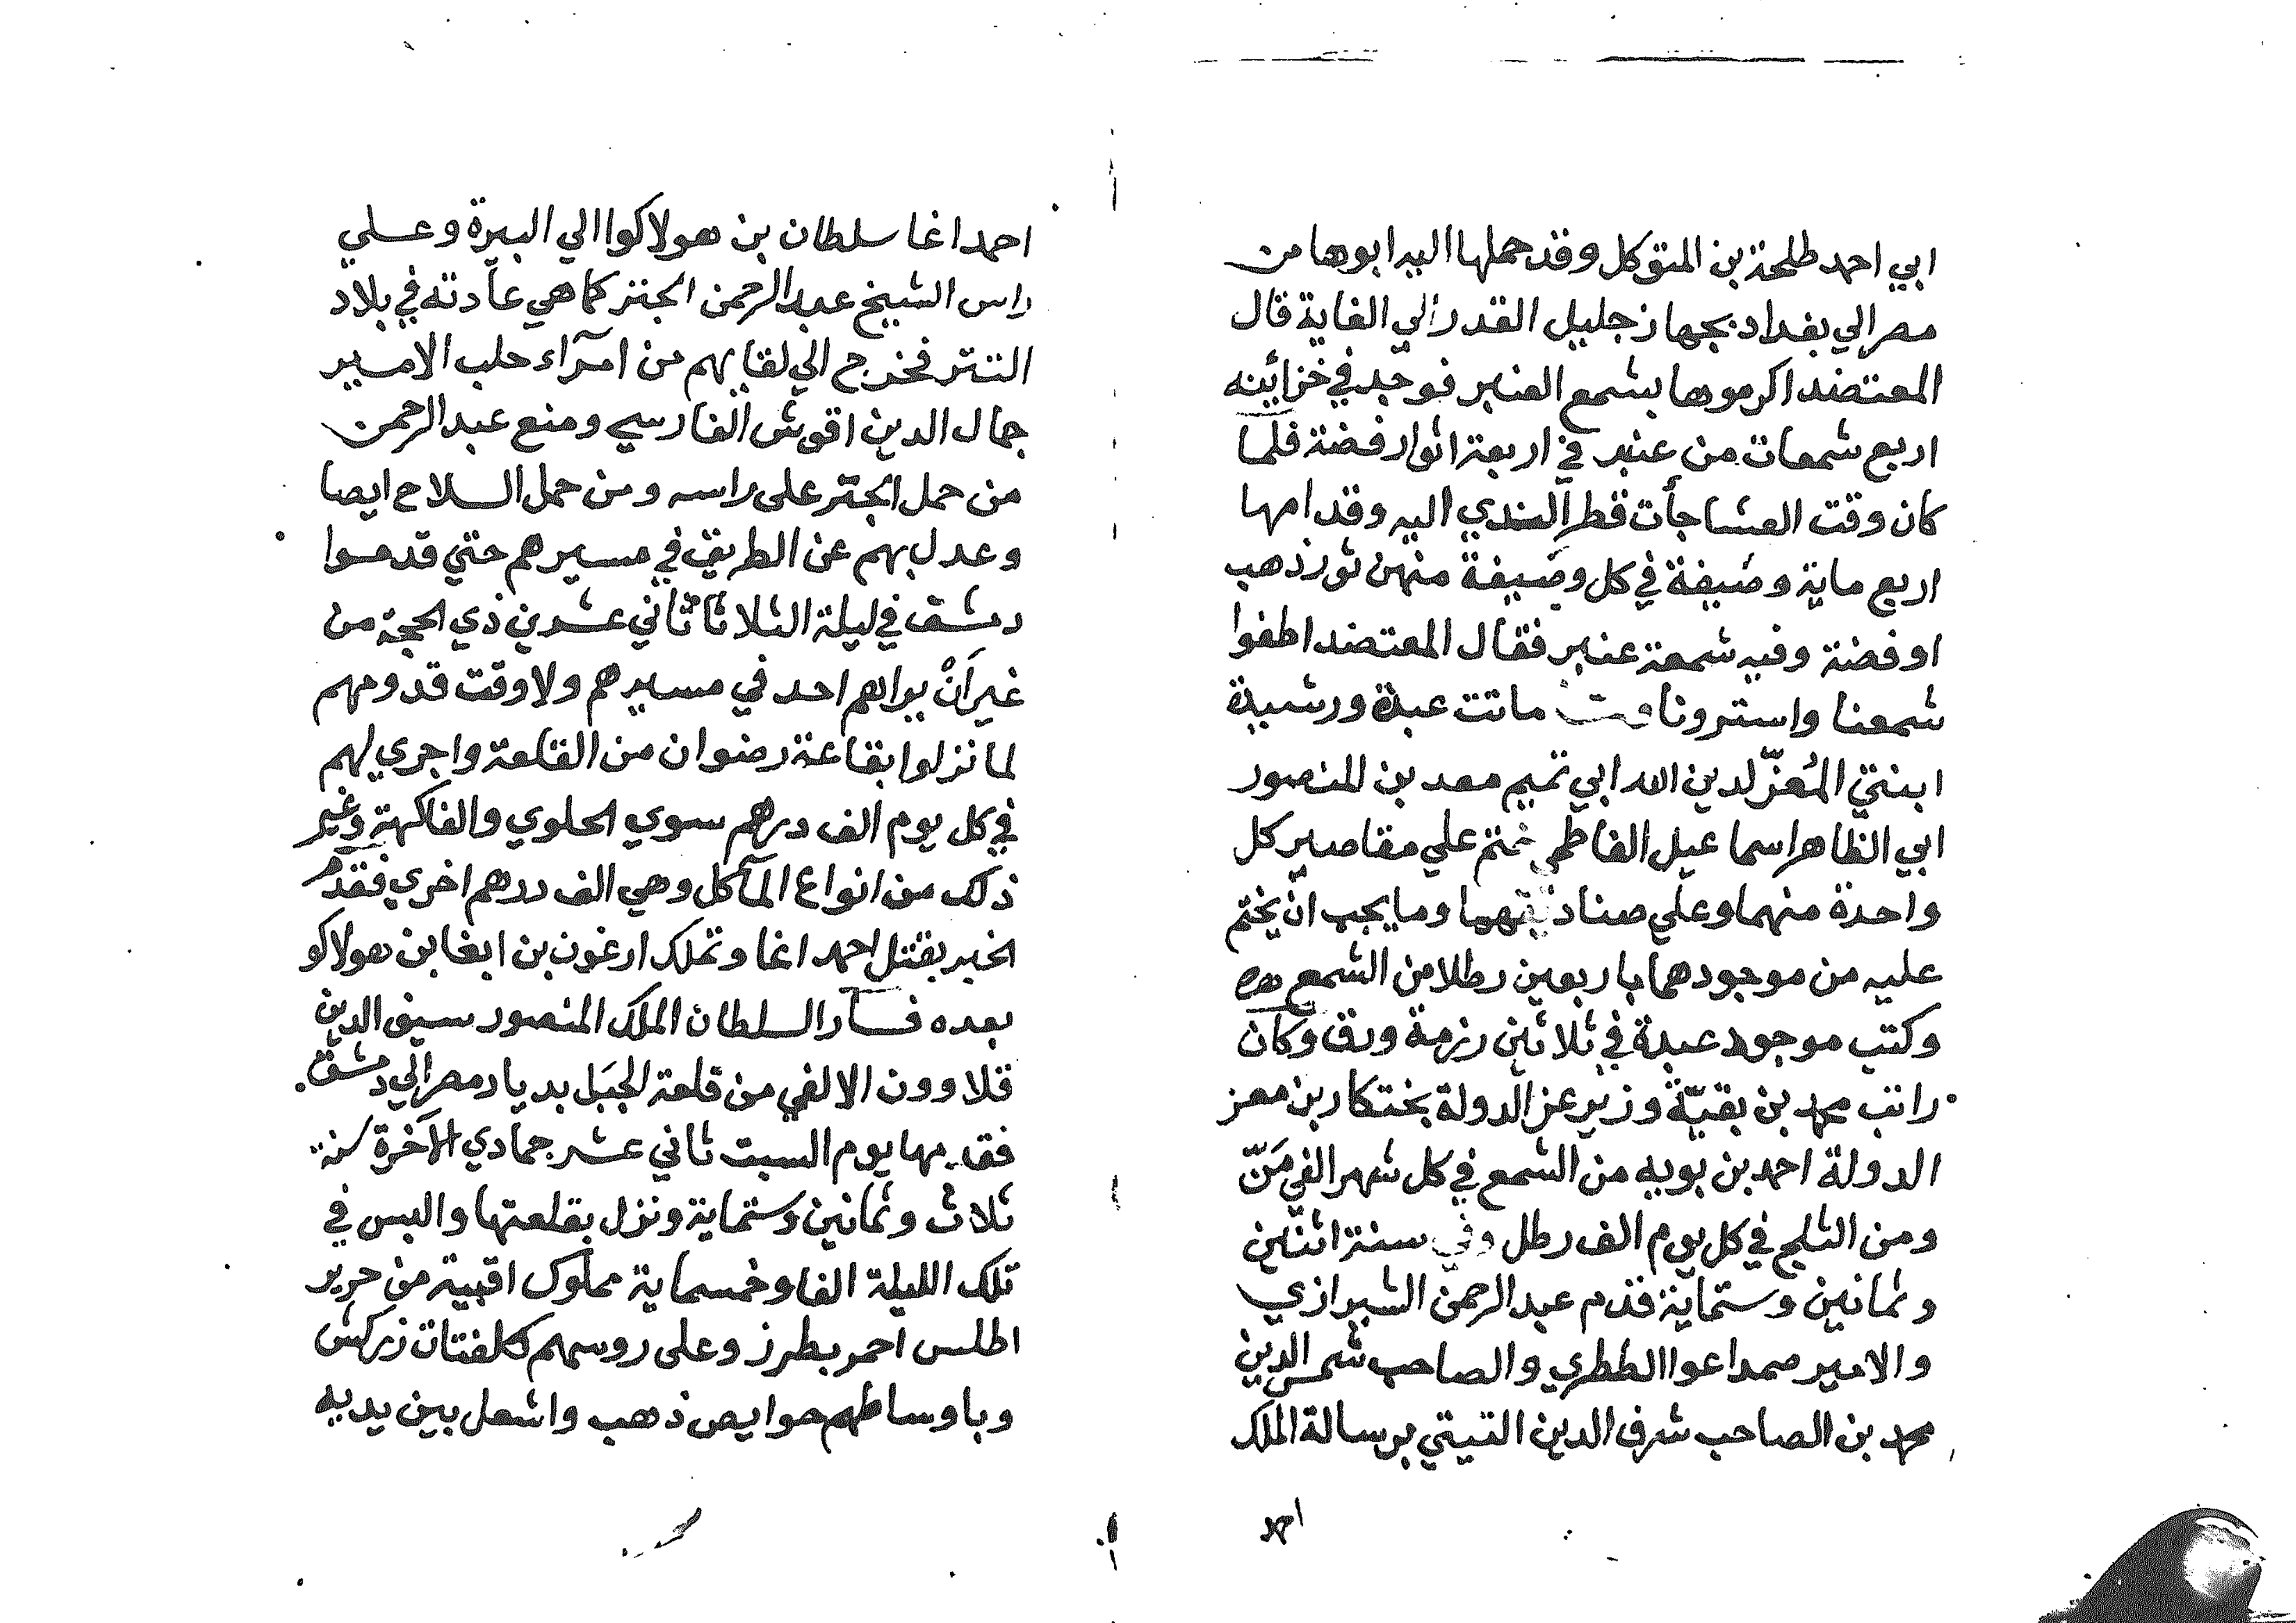 ابي احمد طلحة بن المتوكل وقد حملها اليه ابوها من
مصر الي بغداد بجهاز جليل القدر الي الغاية قال
المعتضد اكرموها بشمع العنبر فوجد في خزائنه
اربع شمعات من عنبر في اربعة اتوار فضة فلما
كان وقت العشا جأت قطر الندي اليه وقدامها
اربع ماية وصيفة في كل وصيفة منهن تور ذهب
او فضة وفيه شمعة عنبر فقال المعتضد اطفوا
شمعنا واسترونا ماتت عبدة ورشيدة
ابنتي المُعزّ لدين الله ابي تميم معد بن المنصور
ابي الظاهر اسماعيل الفاطمي ختم علي مقاصير كل
واحدة منهما وعلي صناديقهما وما يجب ان يختم
عليه من موجودهما باربعين رطلا من الشمع
وكتب موجود عبدة في ثلاثين رزمة ورق وكان
راتب محمد بن بقيّة وزير عز الدولة بختكار بن معز
الدولة احمد بن بويه من الشمع في كل شهر الفي مَنّ
ومن الثلج في كل يوم الف رطل وفي سنة اثنتين
وثمانين وستماية قدم عبد الرحمن الشيرازي
والامير صمداعوا الططري والصاحب شمس الدين
محمد بن الصاحب شرف الدين التيتي برسالة الملك
احمد
احمد اغا سلطان بن هولاكوا الي البيرة وعلي
راس الشيخ عبد الرحمن الجتر كما هي عادته في بلاد
التتر فخرج الي لقايهم من امرآء حلب الامير
جمال الدين اقوش الفارسي ومنع عبد الرحمن
من حمل الجتر على راسه ومن حمل السلاح ايضا
وعدل بهم عن الطريق في مسيرهم حتي قدموا
دمشق في ليلة الثلاثا ثاني عشرين ذي الحجة من
غير اَنْ يراهم احد في مسيرهم ولا وقت قدومهم
لما نزلوا بقاعة رضوان من القلعة واجري لهم
في كل يوم الف درهم سوي الحلوي والفاكهة وغير
ذلك من انواع المآكل وهي الف درهم اخري فقدم
الخبر بقتل احمد اغا وتملك ارغون بن ابغا بن هولاكو
بعده فسار السلطان الملك المنصور سيف الدين
قلاوون الالفي من قلعة الجبَل بديار مصر الي دمشق
فقدمها يوم السبت ثاني عشر جمادي الآخرة سنة
ثلاث وثمانين وستماية ونزل بقلعتها والبس في
تلك الليلة الفا وخمسماية مملوك اقبية من حرير
اطلس احمر بطرز وعلى روسهم كلفتات زركش
وباوساطهم حوايص ذهب واشعل بين يديه